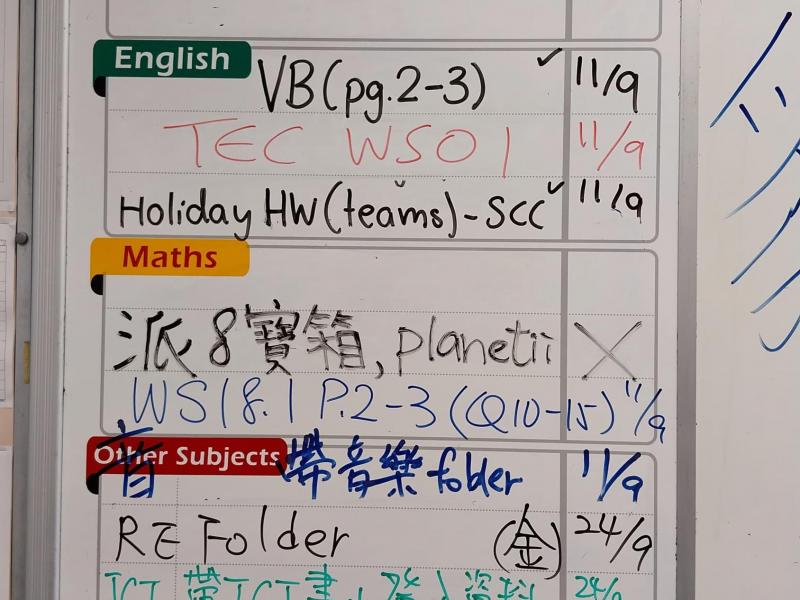 English
VB(pg.2-3) ✓ 11/9
TEC WS01 11/9
Holiday HW(teams)-SCC ✓ 11/9
Maths
派8寶箱, planetii ╳
WS18.1 P.2-3(Q10-15) 11/9
Other Subjects 帶音樂folder 11/9
RE Folder (金) 24/9
ICT 帶ICT書、登入資料 24/9